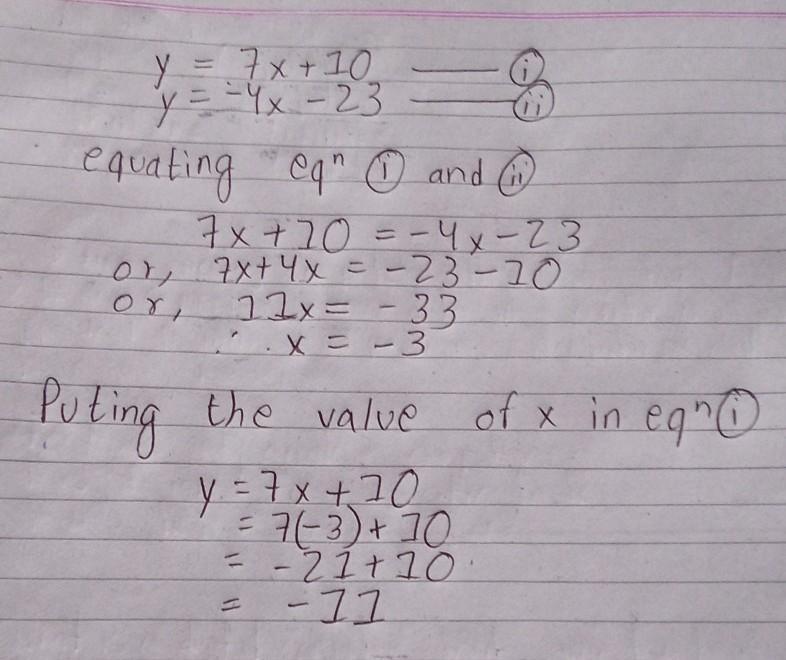 y = 7x+10 —— (i)
y = -4x -23 —— (ii)
equating eqⁿ (i) and (ii)
7x+10 = -4x-23
or, 7x+4x = -23-10
or, 11x = -33
∴ x = -3
Puting the value of x in eqⁿ (i)
y = 7x+10
= 7(-3)+10
= -21+10
= -11